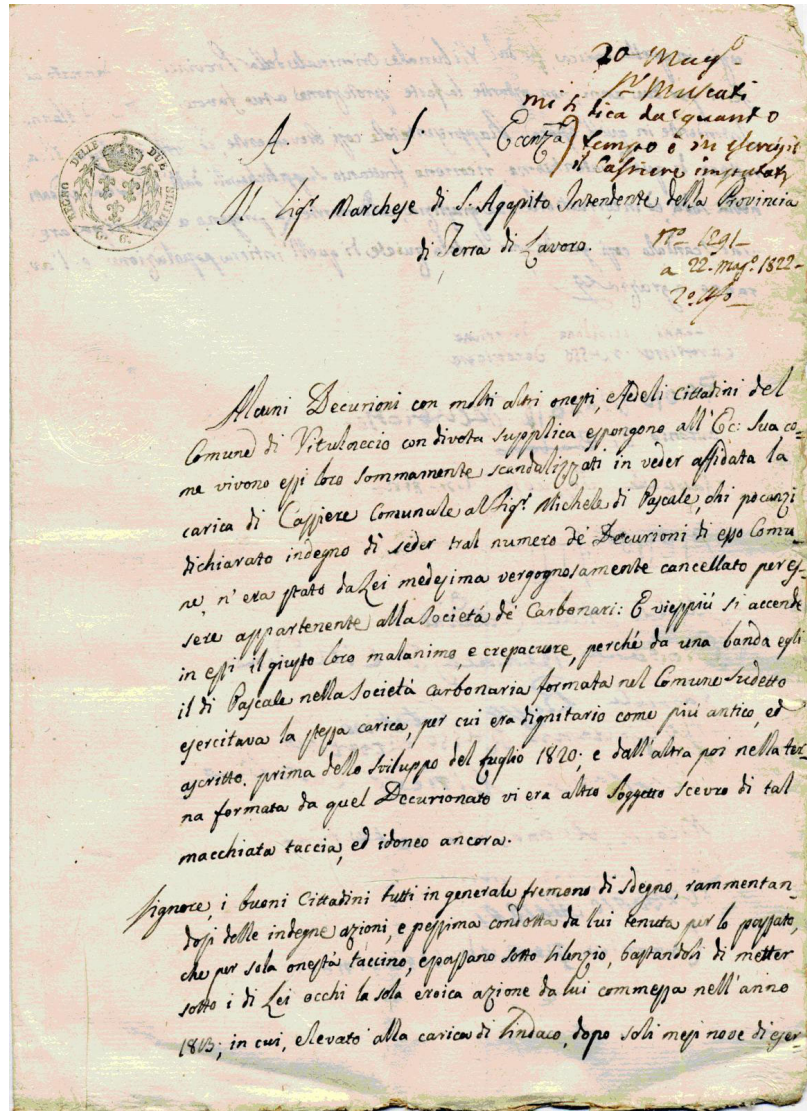 20 Mag.o
Sr. Muscati
mi si dica da quanto
tempo è in esercizio
il Cassiere imputato
A S. Eccnza
REGNO DELLE DUE SICILIE
G. 6
Il Sigr. Marchese di S. Agapito Intendente della Provincia
di Terra di Lavoro.
No. 1291-
a 22. mag.o 1822-
2o.
Alcuni Decurioni con molti altri onesti, e fedeli Cittadini del
Comune di Vitulaccio con divota supplica espongono all'Ec: Sua co-
me vivono essi loro sommamente scandalizzati in veder affidata la
carica di Cassiere Comunale al Sigr. Michele di Pascale, chi pocanzi
dichiarato indegno di seder tral numero de' Decurioni di esso Comu-
ne, n'era stato da Lei medesima vergognosamente cancellato per es-
sere appartenente alla Societá de' Carbonari: E vieppiú si accende
in essi il giusto loro malanimo, e crepacuore, perché da una banda egli
il di Pascale nella Societá Carbonaria formata nel Comune sudetto
esercitava la stessa carica, per cui era dignitario come piú antico, ed
ascritto prima dello sviluppo del Luglio 1820; e dall'altra poi nella ter-
na formata da quel Decurionato vi era altro Soggetto scevro di tal
macchiata taccia, ed idoneo ancora.
Signore, i buoni Cittadini tutti in generale fremono di sdegno, rammentan-
dosi delle indegne azioni, e pessima condotta da lui tenuta per lo passato,
che per sola onestà taccino, e passano sotto silenzio, bastandoli di metter
sotto i di Lei occhi la sola eroica azione da lui commessa nell'anno
1813; in cui, elevato alla carica di Sindaco, dopo soli mesi nove di eser-